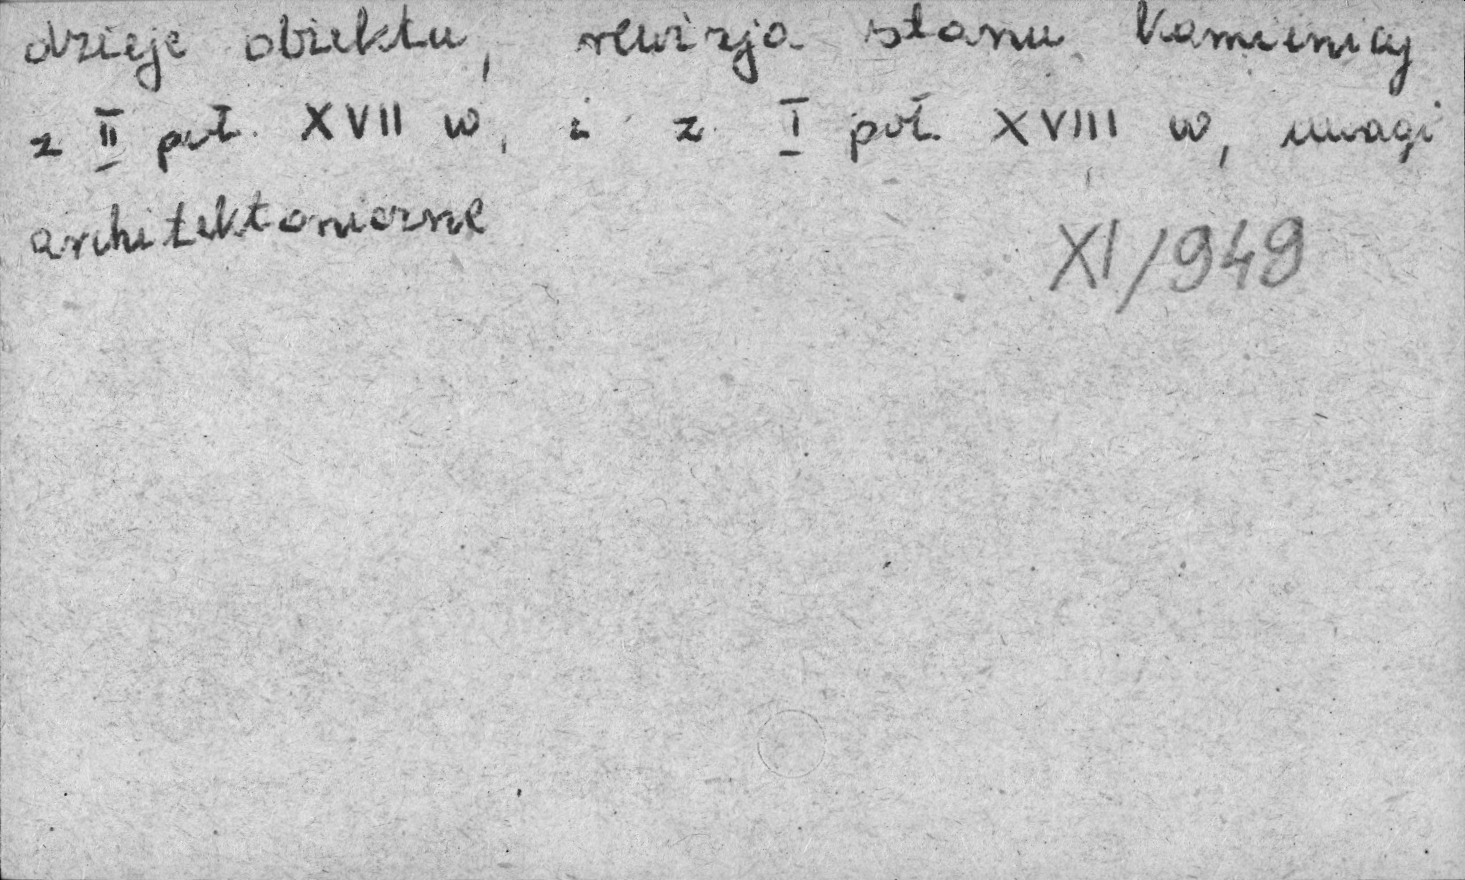 dzieje obiektu, rewizja stanu kamienicy
z II poł. XVII w, i z I poł. XVIII w, uwagi
architektoniczne
XI/949